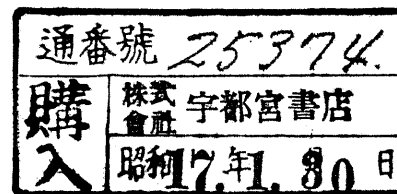 通番號 25374.
購入
株式會社 宇都宮書店
昭和17.年1.月30日